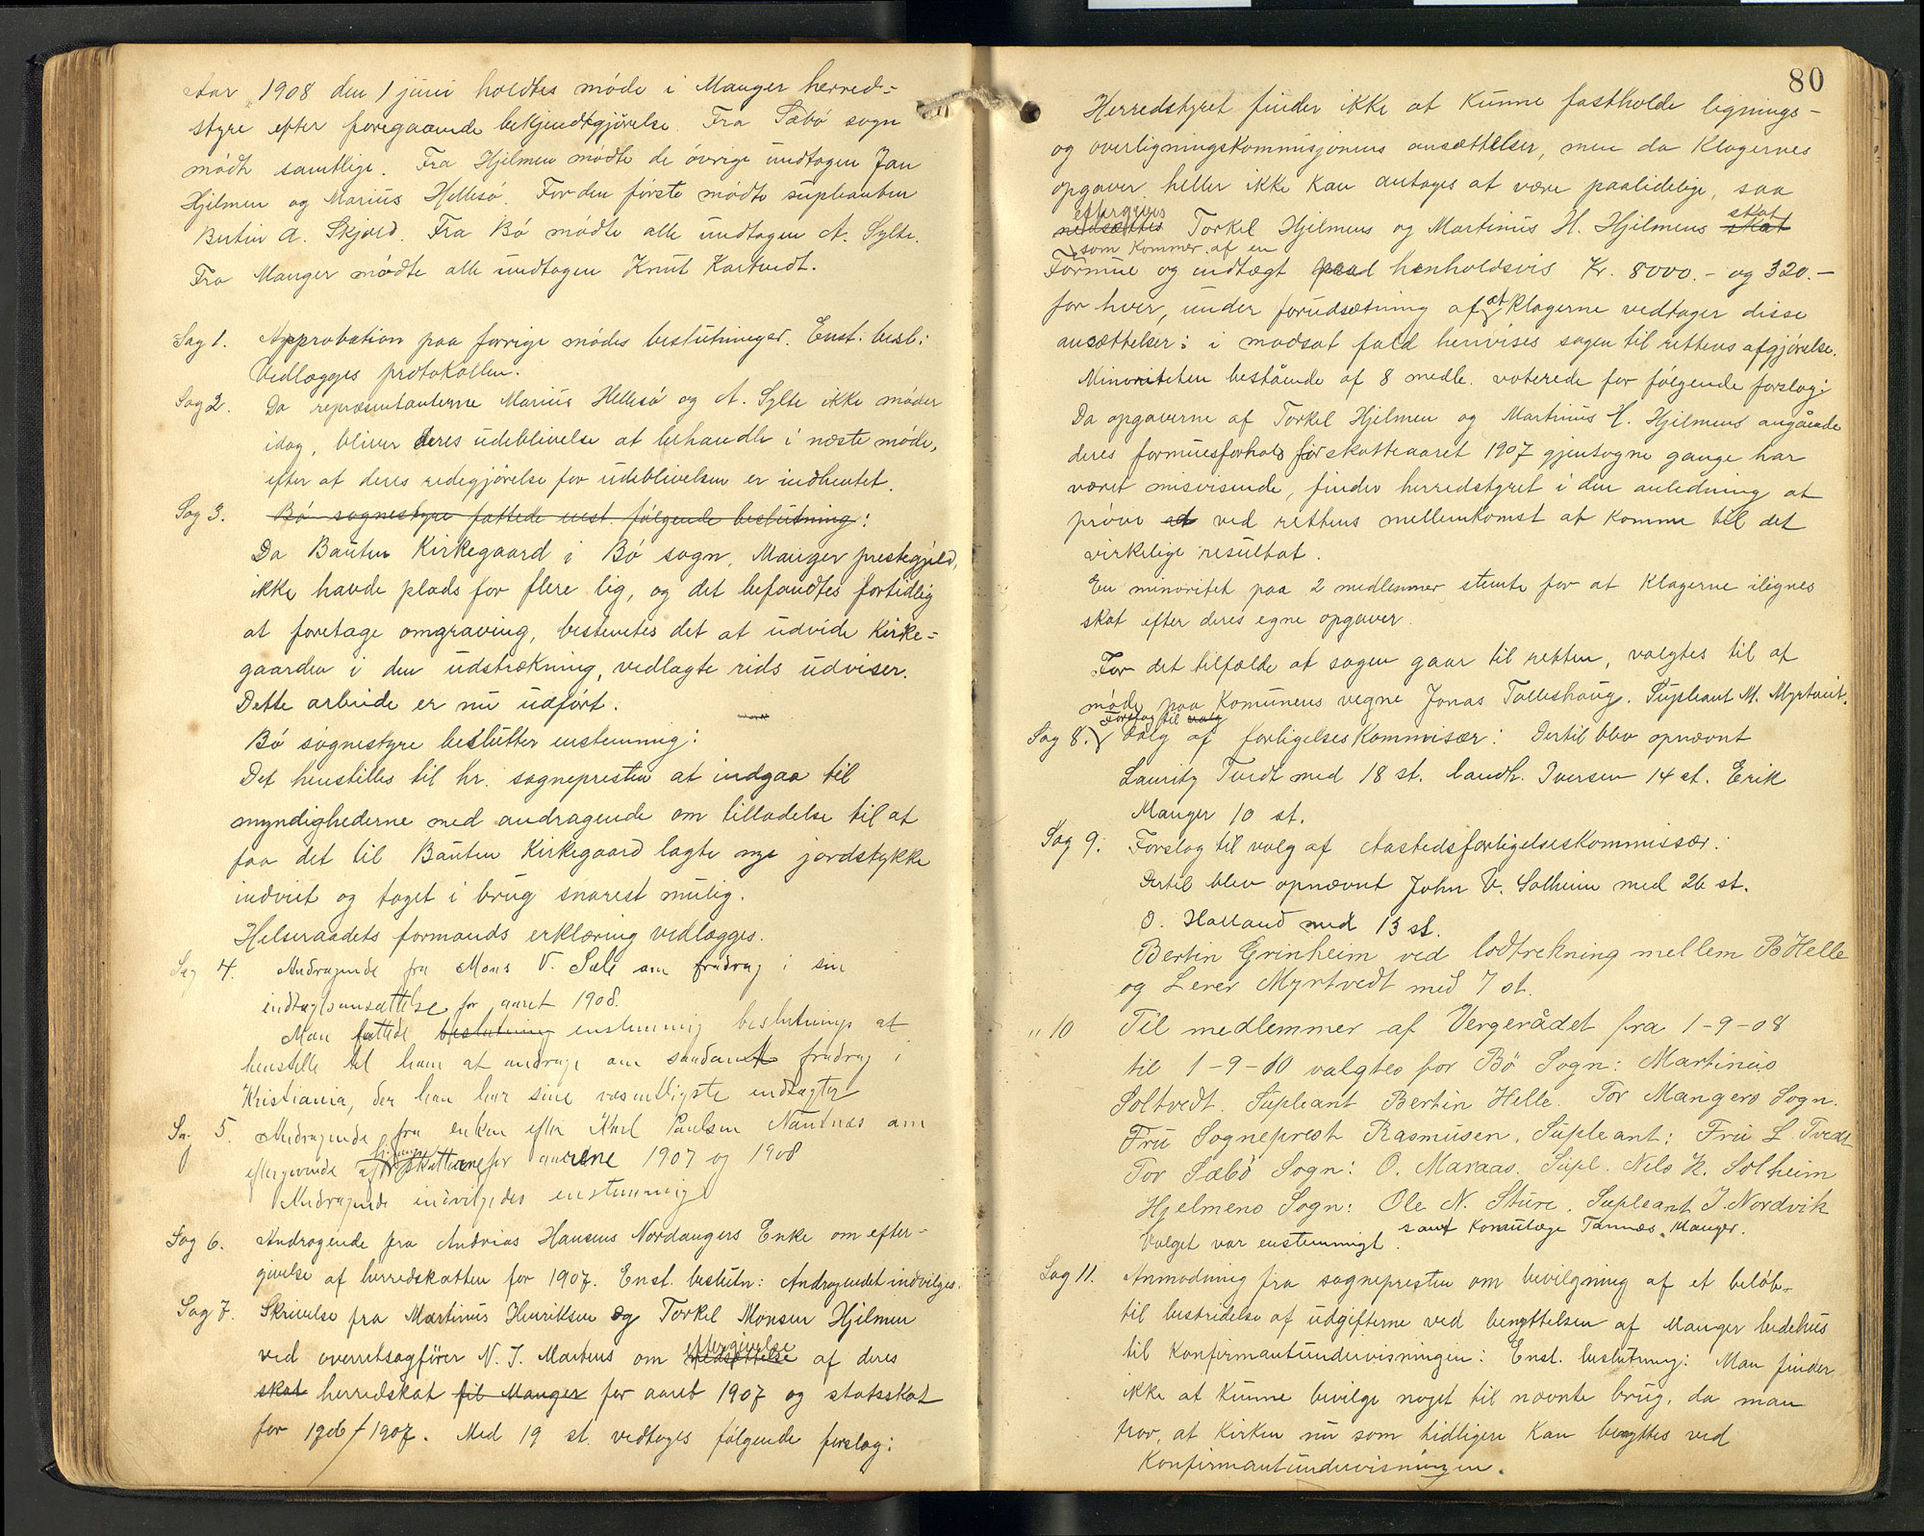 Aar 1908 den 1 juni holdtes møde i Manger herred=
styre efter foregaaende bekjendtgjørelse. Fra Sæbø sogn
mødte samtlige. Fra Hjelmen mødte de øvrige undtagen Jan
Hjelmen og Marius Hellesø. For den første mødte supleanten
Bertin A. Skjold. Fra Bø mødte alle undtagen A. Sylte.
Fra Manger mødte alle undtagen Knut Kartvedt.
Sag 1. Approbation paa forrige mødes beslutninger. Enst. besl:
Vedlægges protokollen.
Sag 2. Da repræsentanterne Marius Hellesø og A. Sylte ikke møder
idag, bliver deres udeblivelse at behandle i næste møde,
efter at deres redegjørelse for udeblivelsen er indhentet.
Sag 3. Bø sognestyre fattede enst. følgende beslutning:
Da Bauten Kirkegaard i Bø sogn, Manger prestegjeld,
ikke havde plads for flere lig, og det befandtes fortidlig
at foretage omgraving, bestemtes det at udvide Kirke=
gaarden i den udstrækning, vedlagte rids udviser.
Dette arbeide er nu udført.
Bø sognestyre beslutter enstemmig:
Det henstilles til hr. sognepresten at indgaa til
myndighederne med andragende om tilladelse til at
faa det til Bauten Kirkegaard lagte nye jordstykke
indviet og taget i brug snarest mulig.
Helseraadets formands erklæring vedlægges.
Sag 4. Andragende fra Mons V. Sæle om fradrag i sin
indtægtsansættelse for aaret 1908.
Man fattede beslutning enstemmig beslutnings at
henstille til ham at andrage om saadant fradrag i
Kristiania, der han har sine væsentligste indtægter
Sag 5. Andragende fra enken efter Karl Paulsen Nautnes om
eftergivende af skatterne for aarene 1907 og 1908
Andragende indvilgedes enstemmig
Sag 6. Andragende fra Andreas Hansens Nordangers Enke om efter-
givelse af herredskatten for 1907. Enst. beslutn: Andragendet indvilges.
Sag 7. Skrivelse fra Martinus Henriksen og Torkel Monsen Hjelmen
eftergivelse
ved overretsagfører N. J. Martens om nedsættelse af deres
skat herredskat til Manger for aaret 1907 og statsskat
for 1906/1907. Med 19 st. vedtages følgende forslag:
80
Herredstyret finder ikke at kunne fastholde lignings-
og overligningskommisjonens ansættelser, men da Klagernes
opgaver heller ikke kan antages at være paalidelige, saa
eftergives skat
nedsættes Torkel Hjelmens og Martinus H. Hjelmens skat
som kommer af en
Formue og indtægt paa henholdsvis Kr. 8000.- og 320.-
for hver, under forudsætning af at Klagerne vedtager disse
ansættelser; i modsat fald henvises sagen til rettens afgjørelse.
Minoriteten bestående af 8 medle. voterede for følgende forslag:
Da opgaverne af Torkel Hjelmen og Martinus H. Hjelmens angående
deres formuesforhold for skatteaaret 1907 gjentagne gange har
været misvisende, finder herredstyret i den anledning at
prøve at ved rettens mellemkomst at komme til det
virkelige resultat.
En minoritet paa 2 medlemmer stemte for at Klagerne ilignes
skat efter deres egne opgaver.
For det tilfælde at sagen gaar til retten, valgtes til at
møde paa Komunens vegne Jonas Toleshaug. Supleant M. Myrtveit.
Forslag til valg
Sag 8. Valg af forligelseskommisær: Dertil blev opnævnt
Lauritz Tvedt med 18 st. landh. Iversen 14 st. Erik
Manger 10 st.
Sag 9. Forslag til valg af Aastedsforligelseskommissær:
Dertil blev opnævnt John V. Solheim med 26 st.
O. Halland med 13 st.
Bertin Grinheim ved lodtrekning mellem B Helle
og Lerer Myrtvedt med 7 st.
" 10 Til medlemmer af Vergerådet fra 1-9-08
til 1-9-10 valgtes for Bø Sogn: Martinus
Soltvedt. Supleant Bertin Helle. For Mangers Sogn.
Fru Sogneprest Rasmusen. Supleant: Fru L. Tvedt
For Sæbø Sogn: O. Maraas. Supl. Nils K. Solheim
Hjelmens Sogn: Ole N. Sture. Supleant I. Nordvik
samt Komulæge Tannæs, Manger.
Valget var enstemmigt.
Sag 11. Anmodning fra sognepresten om bevilgning af et beløb
til bestridelse af udgifterne ved benyttelsen af Manger bedehus
til Konfirmantundervisningen: Enst. beslutning: Man finder
ikke at kunne bevilge noget til nævnte brug, da man
tror, at Kirken nu som tidligere kan benyttes ved
Konfirmantundervisningen.